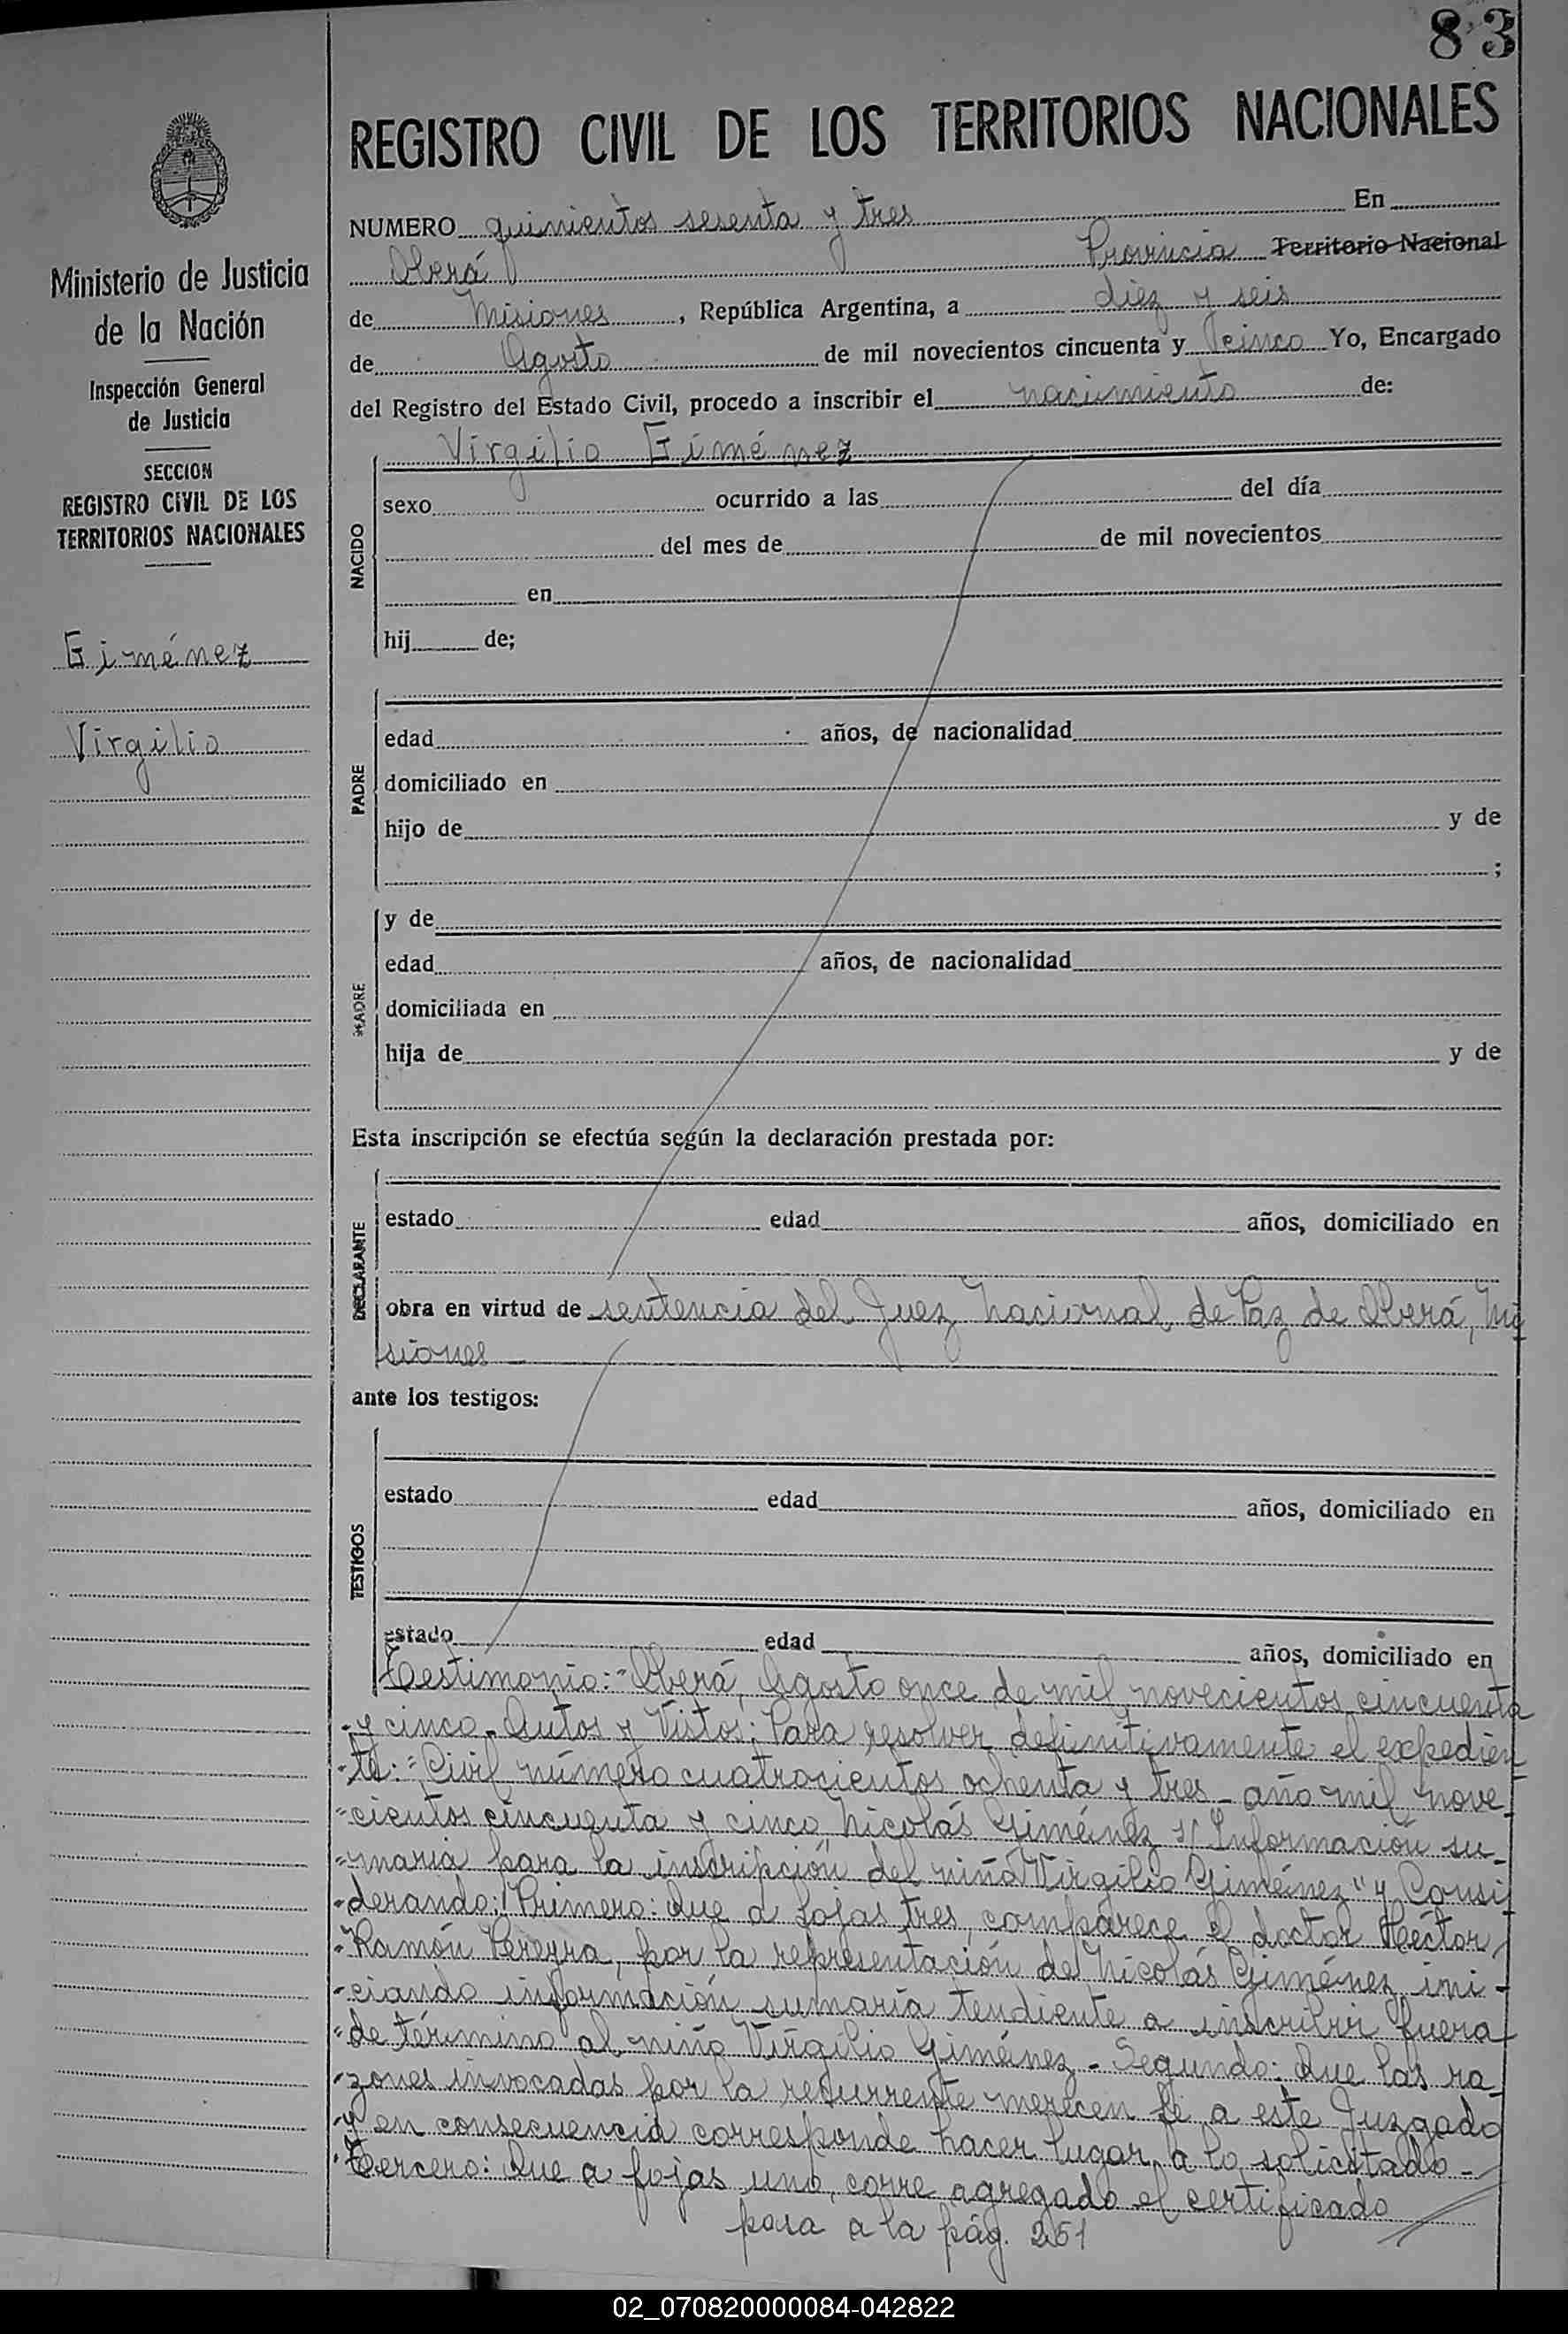 83
REGISTRO CIVIL DE LOS TERRITORIOS NACIONALES
Ministerio de Justicia
de la Nación
Inspección General
de Justicia
SECCION
REGISTRO CIVIL DE LOS
TERRITORIOS NACIONALES
Giménez
Virgilio
NUMERO quinientos sesenta y tres En
Oberá Provincia Territorio Nacional
de Misiones, República Argentina, a diez y seis
de Agosto de mil novecientos cincuenta y cinco Yo, Encargado
del Registro del Estado Civil, procedo a inscribir el nacimiento de:
Virgilio Giménez
NACIDO
sexo ocurrido a las del día
del mes de de mil novecientos
en
hij de;
PADRE
edad años, de nacionalidad
domiciliado en
hijo de y de
;
MADRE
y de
edad años, de nacionalidad
domiciliada en
hija de y de
Esta inscripción se efectúa según la declaración prestada por:
DECLARANTE
estado edad años, domiciliado en
obra en virtud de sentencia del Juez Nacional de Paz de Oberá, Mi
siones
ante los testigos:
TESTIGOS
estado edad años, domiciliado en
estado edad años, domiciliado en
Testimonio:-Oberá, Agosto once de mil novecientos cincuenta
-y cinco.-Autos y Vistos: Para resolver definitivamente el expedien
-te:-Civil número cuatrocientos ochenta y tres-año mil nove-
-cientos cincuenta y cinco, Nicolás Giménez s/ Información su-
-maria para la inscripción del niño Virgilio Giménez" y Consi
-derando: Primero: Que a fojas tres, comparece el doctor Héctor
-Ramón Pereyra, por la representación de Nicolás Giménez, ini-
-ciando información sumaria tendiente a inscribir fuera
-de término al niño Virgilio Giménez.- Segundo: Que las ra-
-zones invocadas por la recurrente merecen fé a este Juzgado
-y en consecuencia corresponde hacer lugar a lo solicitado-
-Tercero: Que a fojas uno, corre agregado el certificado
pasa a la pág. 251
02_070820000084-042822